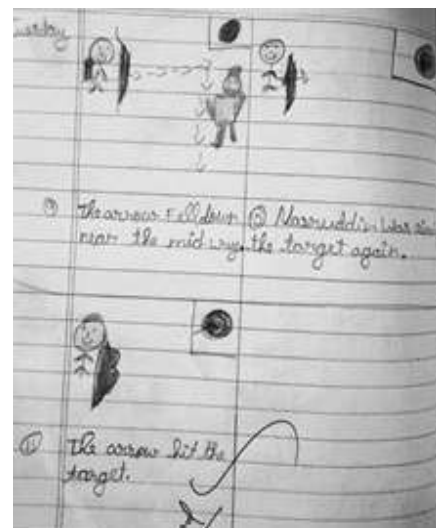 Tuesday
⑨ The arrow Fell down
near the mid way.
⑩ Nasruddin was
the target again.
⑪ The arrow hit the
target.